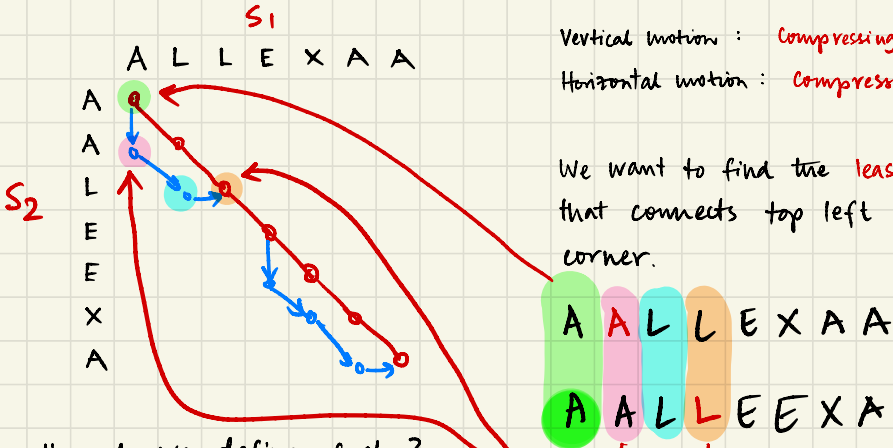 S1
A L L E X A A
S2
A
A
L
E
E
X
A
Vertical motion : Compressing
Horizontal motion : Compress
We want to find the leas
that connects top left
corner.
A A L L E X A A
A A L L E E X A